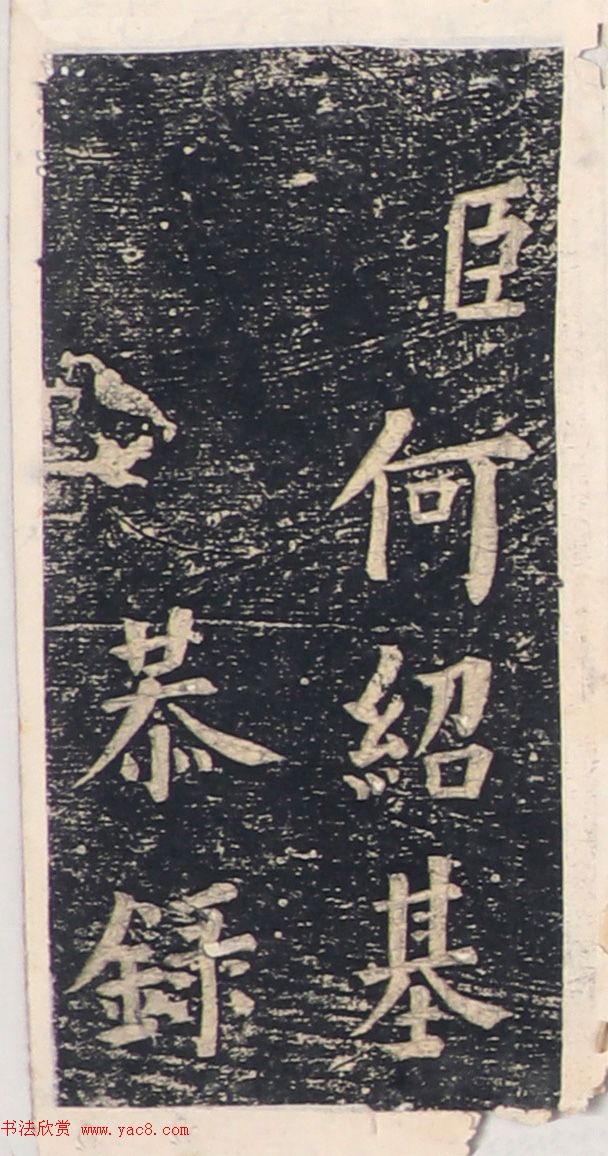 臣何紹基
恭録
书法欣赏 www.yac8.com